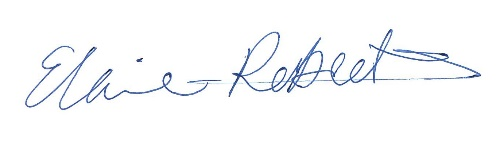 Elaine Roberts